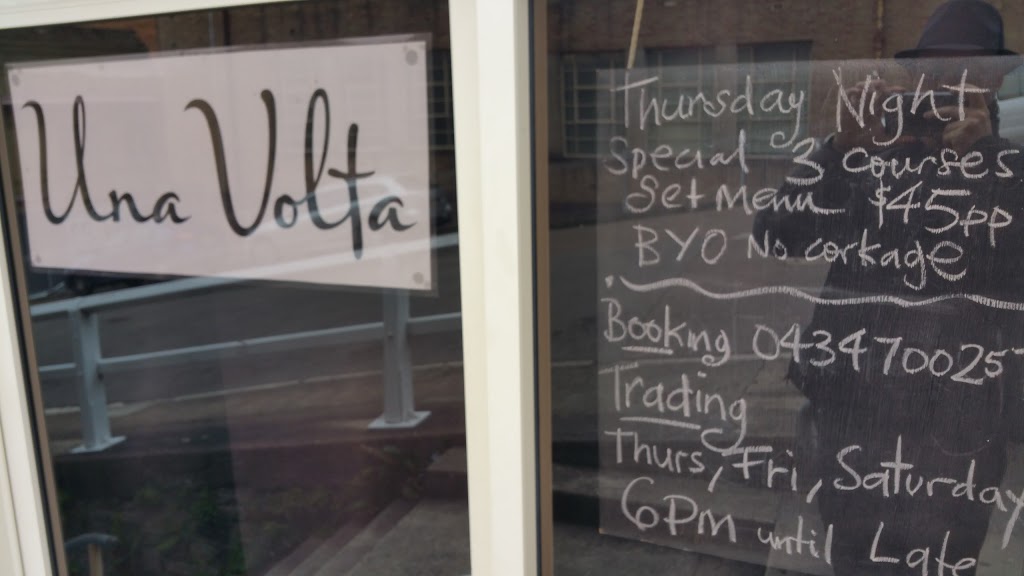 Una Volta
Thursday Night
Special 3 courses
Set Menu $45pp
BYO No corkage
Booking 0434700257
Trading
Thurs, Fri, Saturday
6PM until Late